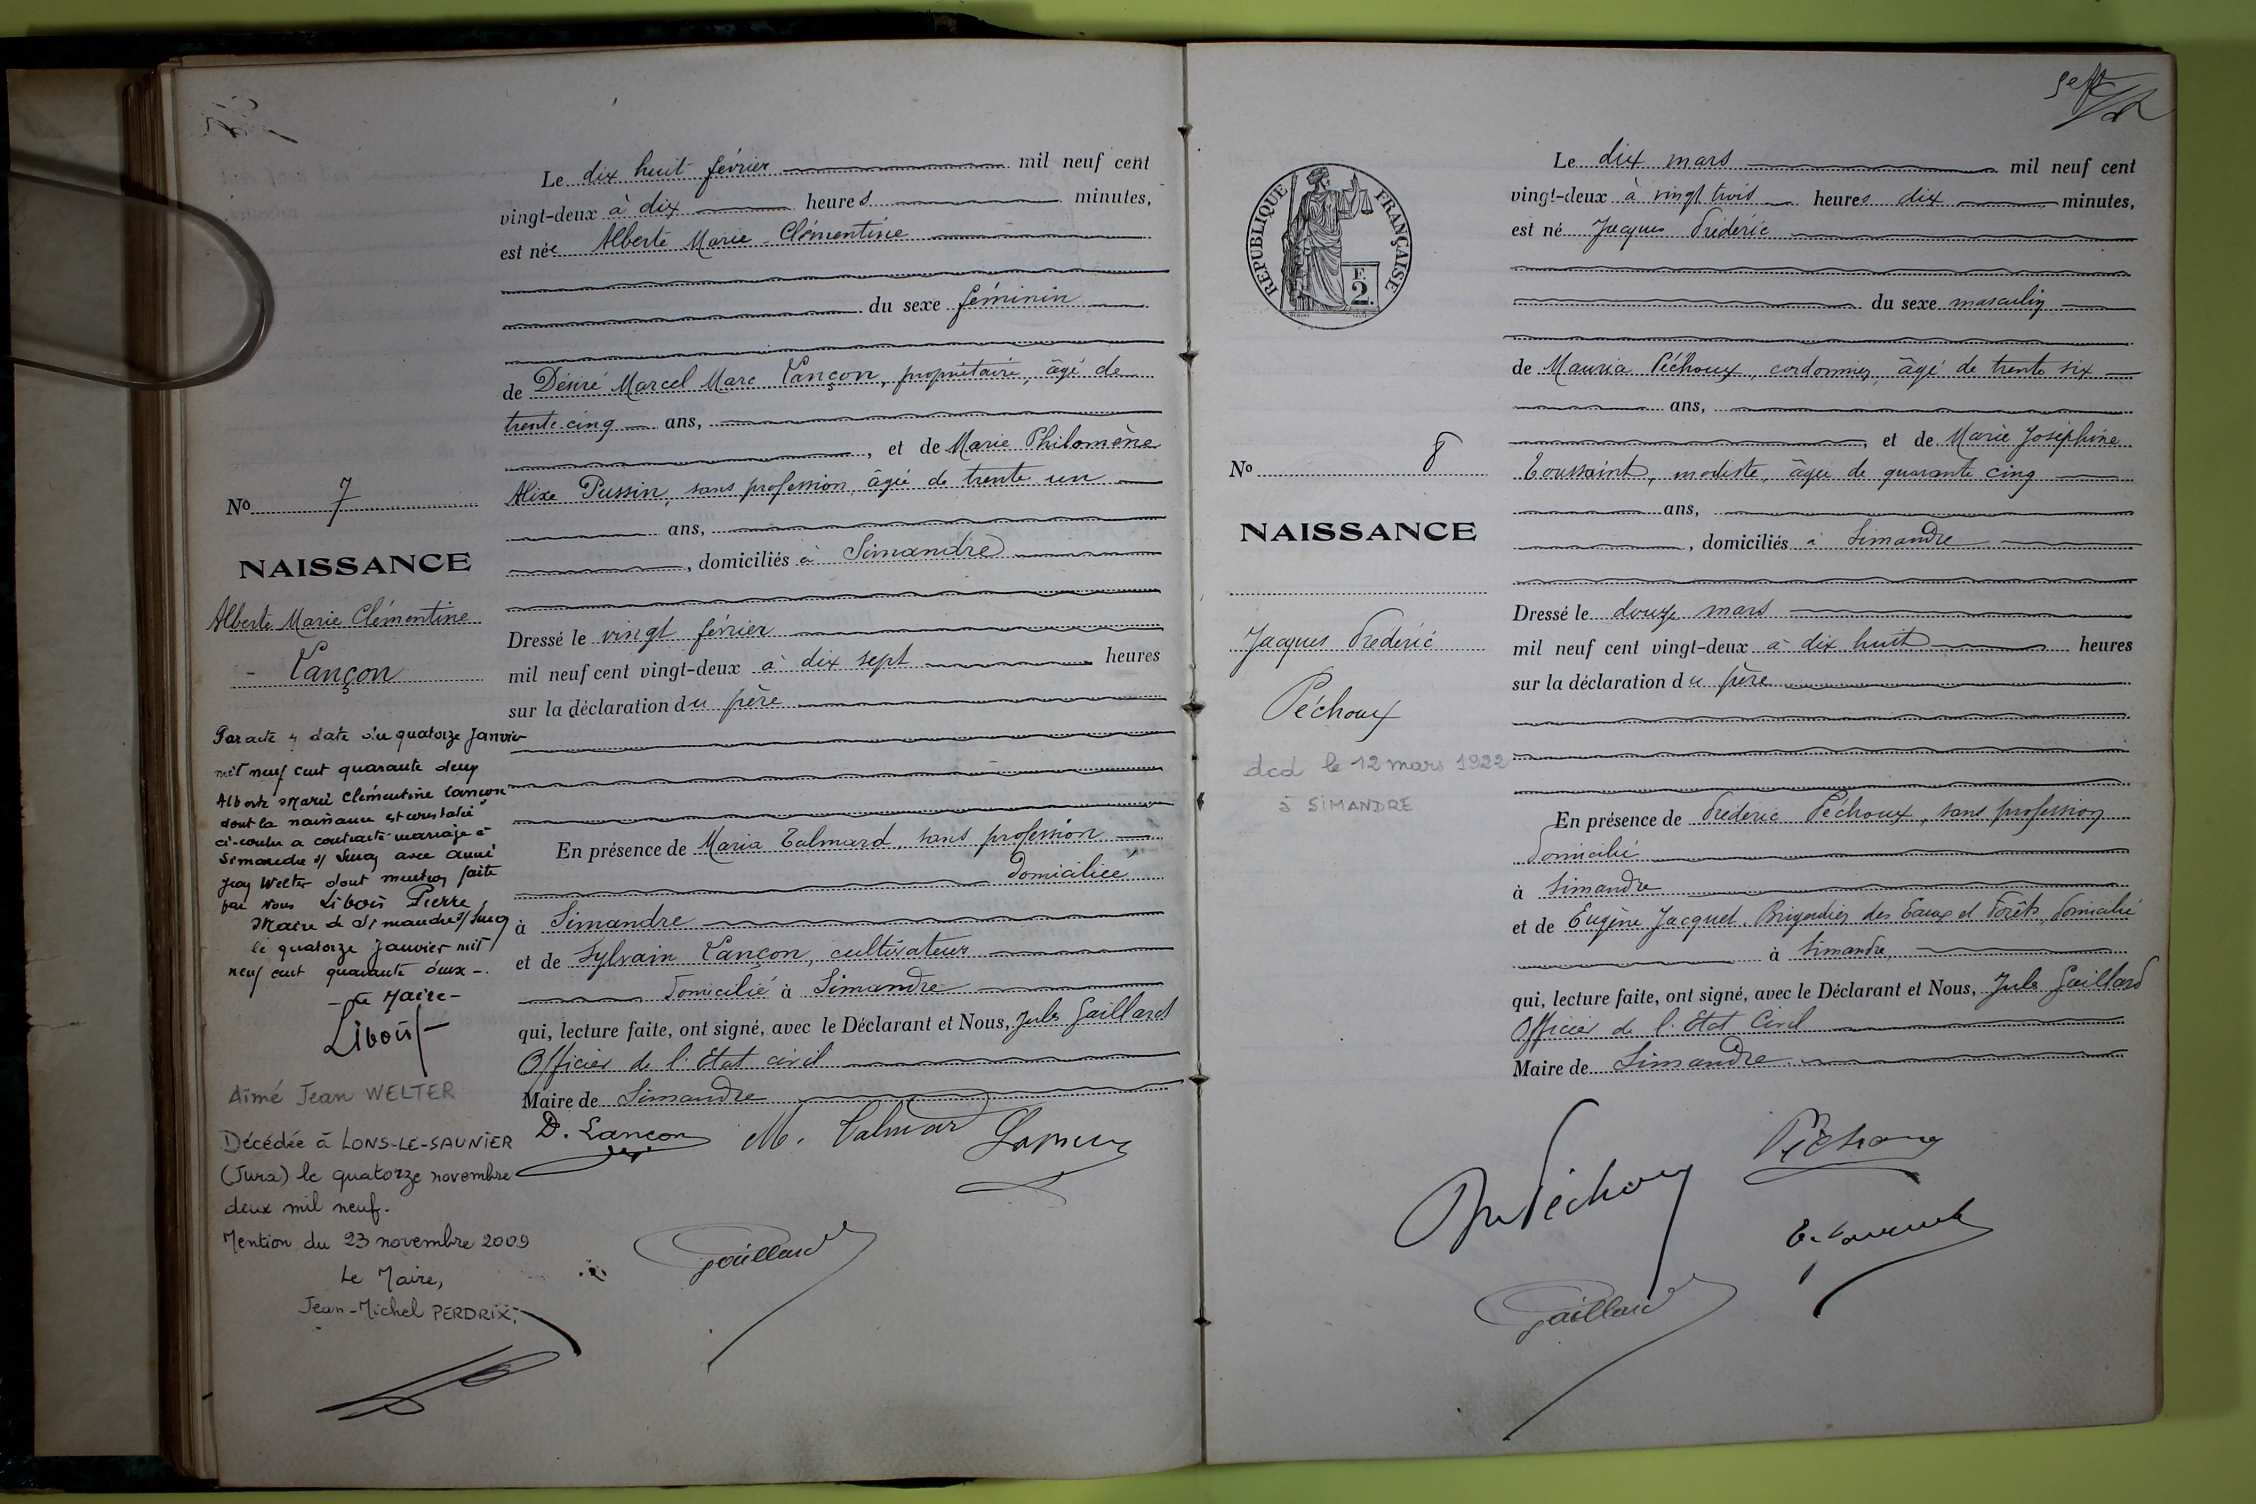 Le dix huit février mil neuf cent
vingt-deux à dix heures minutes,
est née Alberte Marie Clémentine
du sexe féminin
de Désiré Marcel Marc Lançon, propriétaire, âgé de
trente cinq ans,
, et de Marie Philomène
Alixe Pussin, sans profession, âgée de trente un
ans,
, domiciliés à Simandre
Dressé le vingt février
mil neuf cent vingt-deux à dix sept heures
sur la déclaration du père
En présence de Maria Talmard, sans profession
domiciliée
à Simandre
et de Sylvain Lançon, cultivateur
domicilié à Simandre
qui, lecture faite, ont signé, avec le Déclarant et Nous, Jules Gaillard
Officier de l'Etat civil
Maire de Simandre
D. Lançon M. Talmard
Gaillard
No 7
NAISSANCE
Alberte Marie Clémentine
- Lançon
Par acte en date du quatorze Janvier
mil neuf cent quarante deux
Alberte Marie Clémentine Lançon
dont la naissance est constatée
ci-contre a contracté mariage à
Simandre s/ Suran avec Aimé
Jean Welter dont mention faite
par nous Libois Pierre
Maire de Simandre s/ Suran
le quatorze Janvier mil
neuf cent quarante deux -.
- Le Maire -
Libois
Aimé Jean WELTER
Décédée à LONS-LE-SAUNIER
(Jura) le quatorze novembre
deux mil neuf.
Mention du 23 novembre 2009
Le Maire,
Jean-Michel PERDRIX,
sept
REPUBLIQUE FRANÇAISE
F.
2.
Le dix mars mil neuf cent
vingt-deux à vingt trois heures dix minutes,
est né Jacques Frédéric
du sexe masculin
de Mauria Péchoux, cordonnier, âgé de trente six
ans,
, et de Marie Joséphine
Toussaint, modiste, âgée de quarante cinq
ans,
, domiciliés à Simandre
Dressé le douze mars
mil neuf cent vingt-deux à dix huit heures
sur la déclaration du père
En présence de Frédéric Péchoux, sans profession
domicilié
à Simandre
et de Eugène Jacquet, Brigadier des Eaux et Forêts, domicilié
à Simandre,
qui, lecture faite, ont signé, avec le Déclarant et Nous, Jules Gaillard
Officier de l'Etat Civil
Maire de Simandre
Péchoux
Péchoux
Gaillard
No 8
NAISSANCE
Jacques Frédéric
Péchoux
dcd le 12 mars 1922
à SIMANDRE